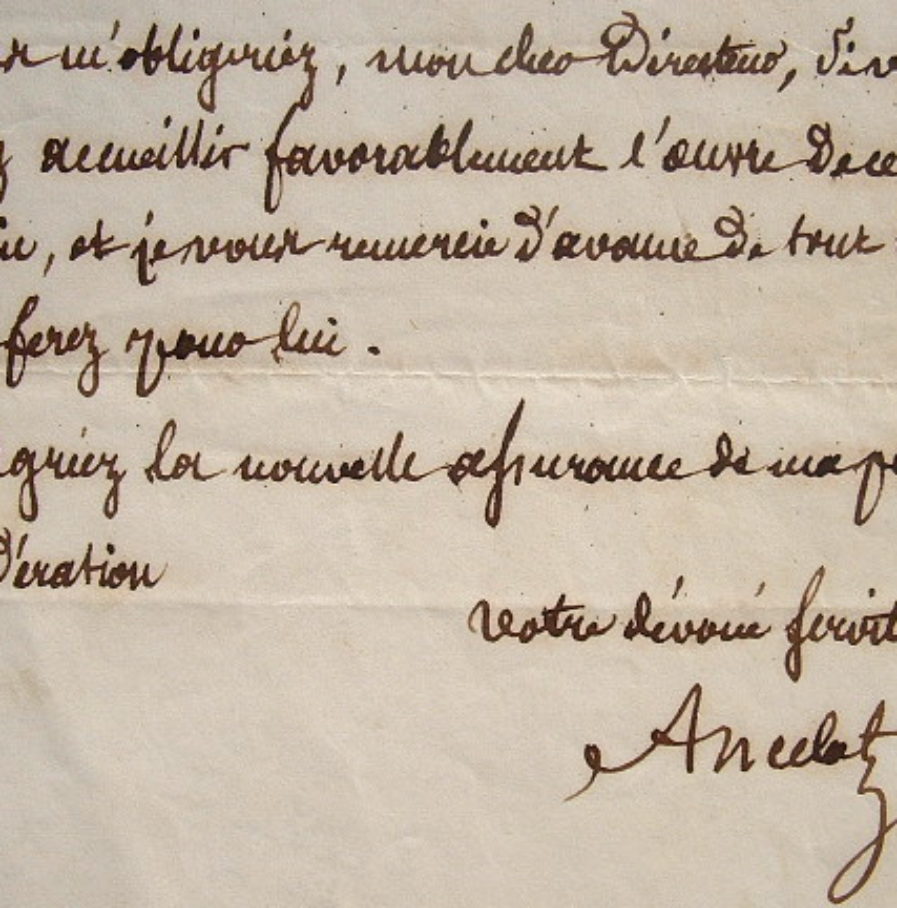 m'obligeriez, mon cher Directeur, si v
accueillir favorablement l'œuvre de ce
, et je vous remercie d'avance de tout
ferez pour lui.
gréez la nouvelle assurance de ma pe
dération
votre dévoué servit
Ancelot